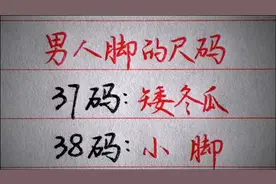 男人脚的尺码
37码:矮冬瓜
38码:小脚